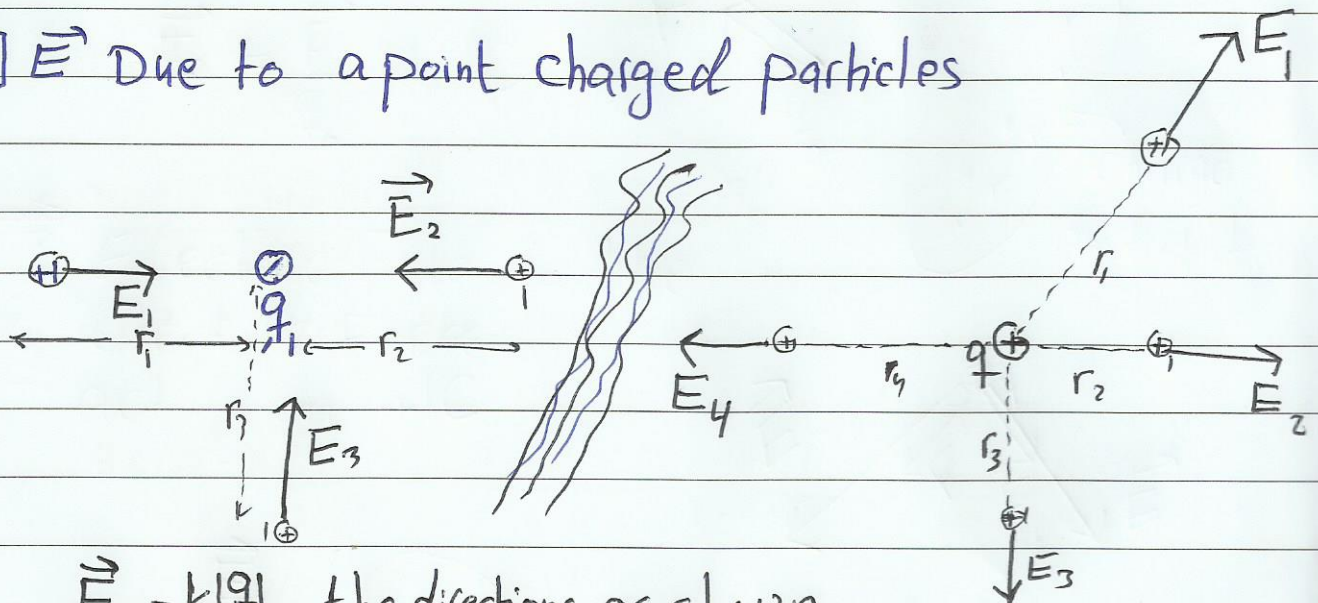 ] E⃗ Due to a point charged particles
E₁
+1
E⃗₂
+1
r₁
E₁
q₁
+
1
r₁
r₂
E₄
r₄
q
+
r₂
+
1
E₂
r₃
E₃
r₃
1
+
E₃
E⃗ = k|q| the directions as shown